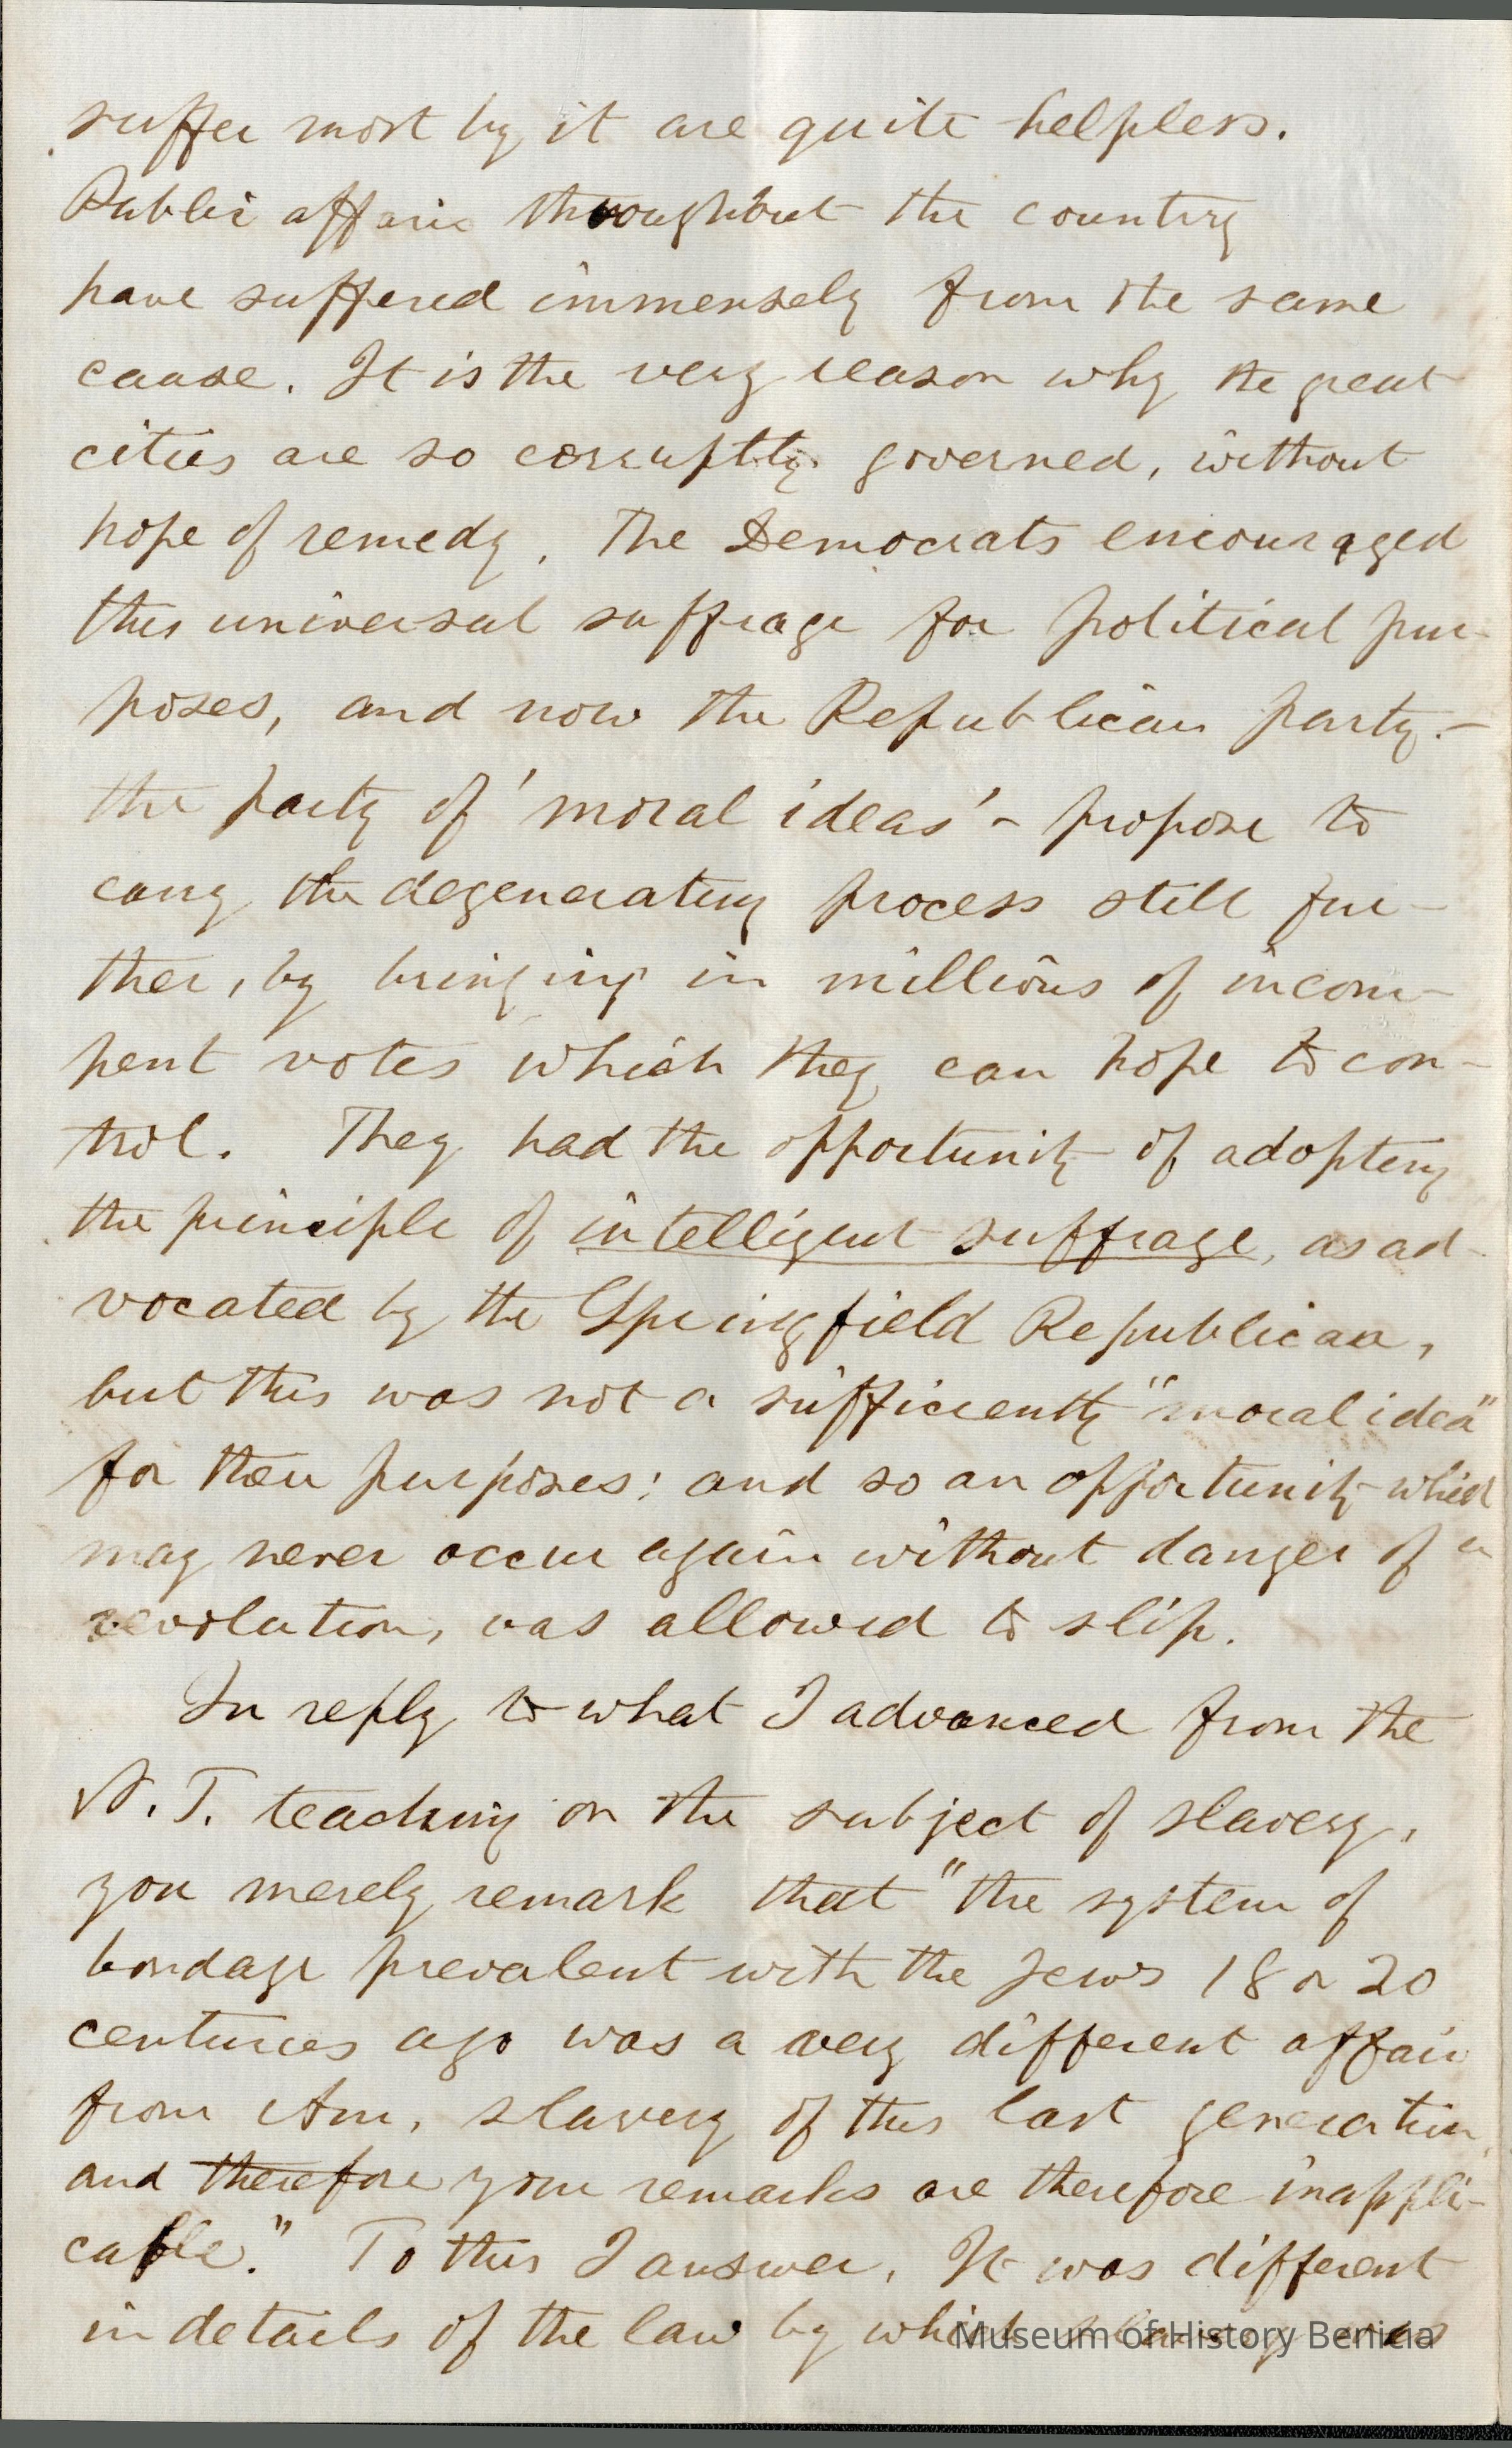 suffer most by it are quite helpless.
Public affairs throughout the country
have suffered immensely from the same
cause. It is the very reason why the great
cities are so corruptly governed, without
hope of remedy. The Democrats encouraged
this universal suffrage for political pur-
poses, and now the Republican party -
the party of 'moral ideas' - propose to
carry the degenerating process still fur-
ther, by bringing in millions of incom-
pent votes which they can hope to con-
trol. They had the opportunity of adopting
the principle of intelligent suffrage, as ad-
vocated by the Springfield Republican,
but this was not a sufficiently "moral idea"
for their purposes; and so an opportunity which
may never occur again without danger of a
revolution, was allowed to slip.
In reply to what I advanced from the
N. T. teaching on the subject of slavery,
you merely remark that "the system of
bondage prevalent with the Jews 18 or 20
centuries ago was a very different affair
from Am. slavery of this last generation,
and therefore your remarks are therefore inappli-
cable." To this I answer, It was different
in details of the law by which slavery was
Museum of History Benicia